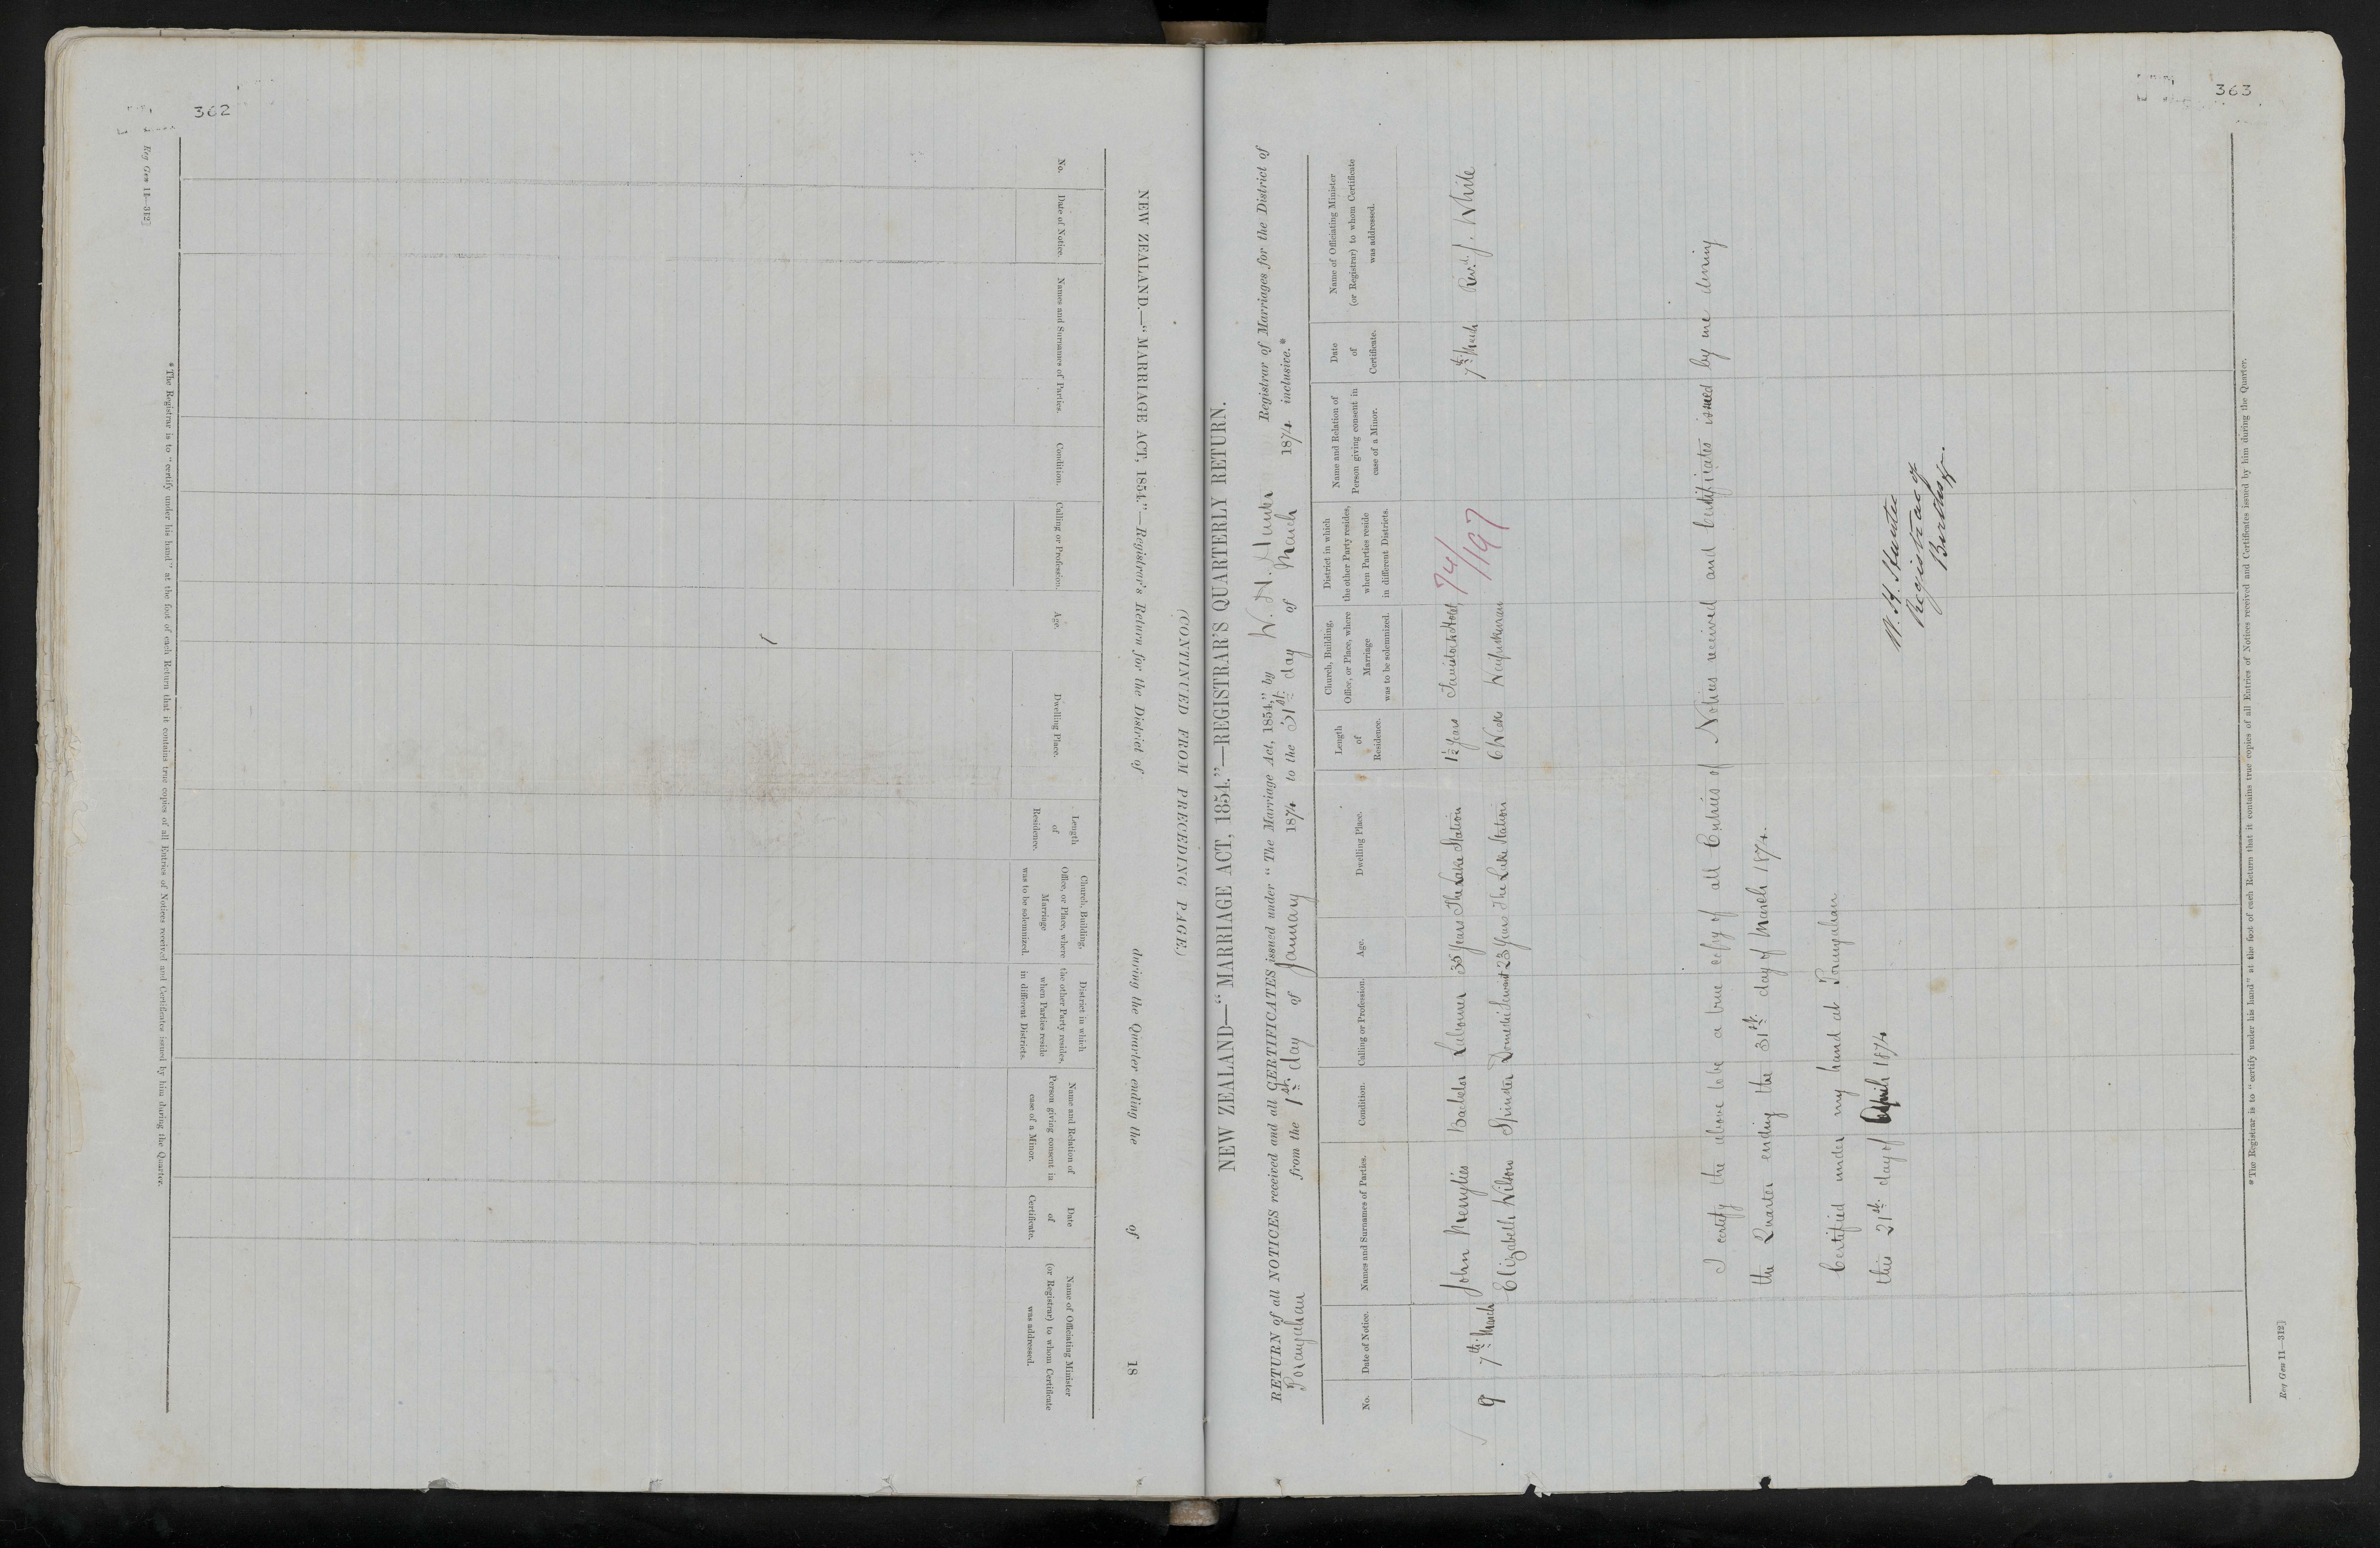 362
Reg Gen 11—312]
NEW ZEALAND.—“MARRIAGE ACT, 1854.”—Registrar's Return for the District of during the Quarter ending the of 18
(CONTINUED FROM PRECEDING PAGE.)
No.
Date of Notice.
Names and Surnames of Parties.
Condition.
Calling or Profession.
Age.
Dwelling Place.
Length
of
Residence.
Church, Building,
Office, or Place, where
Marriage
was to be solemnized.
District in which
the other Party resides,
when Parties reside
in different Districts.
Name and Relation of
Person giving consent in
case of a Minor.
Date
of
Certificate.
Name of Officiating Minister
(or Registrar) to whom Certificate
was addressed.
*The Registrar is to “certify under his hand” at the foot of each Return that it contains true copies of all Entries of Notices received and Certificates issued by him during the Quarter.
363
NEW ZEALAND—“MARRIAGE ACT, 1854.”—REGISTRAR'S QUARTERLY RETURN.
RETURN of all NOTICES received and all CERTIFICATES issued under “The Marriage Act, 1854,” by W. H. Hunter Registrar of Marriages for the District of
Porangahau from the 1st. day of January 1874 to the 31st. day of March 1874 inclusive.*
No.
Date of Notice.
Names and Surnames of Parties.
Condition.
Calling or Profession.
Age.
Dwelling Place.
Length
of
Residence.
Church, Building,
Office, or Place, where
Marriage
was to be solemnized.
District in which
the other Party resides,
when Parties reside
in different Districts.
Name and Relation of
Person giving consent in
case of a Minor.
Date
of
Certificate.
Name of Officiating Minister
(or Registrar) to whom Certificate
was addressed.
John Merrylies Bachelor Labourer 35 Years The Lake Station 1½ Years Tavistock Hotel 74/
9 7th. March 7th. March Revd. J. White
Elizabeth Wilson Spinster Domestic Servant 23 Years The Lake Station 6 Week Waipukurau 1197
I certify the above to be a true copy of all Entries of Notices received and Certificates issued by me during
the Quarter ending the 31st. day of March 1874.
Certified under my hand at Porangahau
this 21st. day of April 1874
W. H. Hunter
Registrar of
*The Registrar is to “certify under his hand” at the foot of each Return that it contains true copies of all Entries of Notices received and Certificates issued by him during the Quarter.
Reg Gen 11—312]